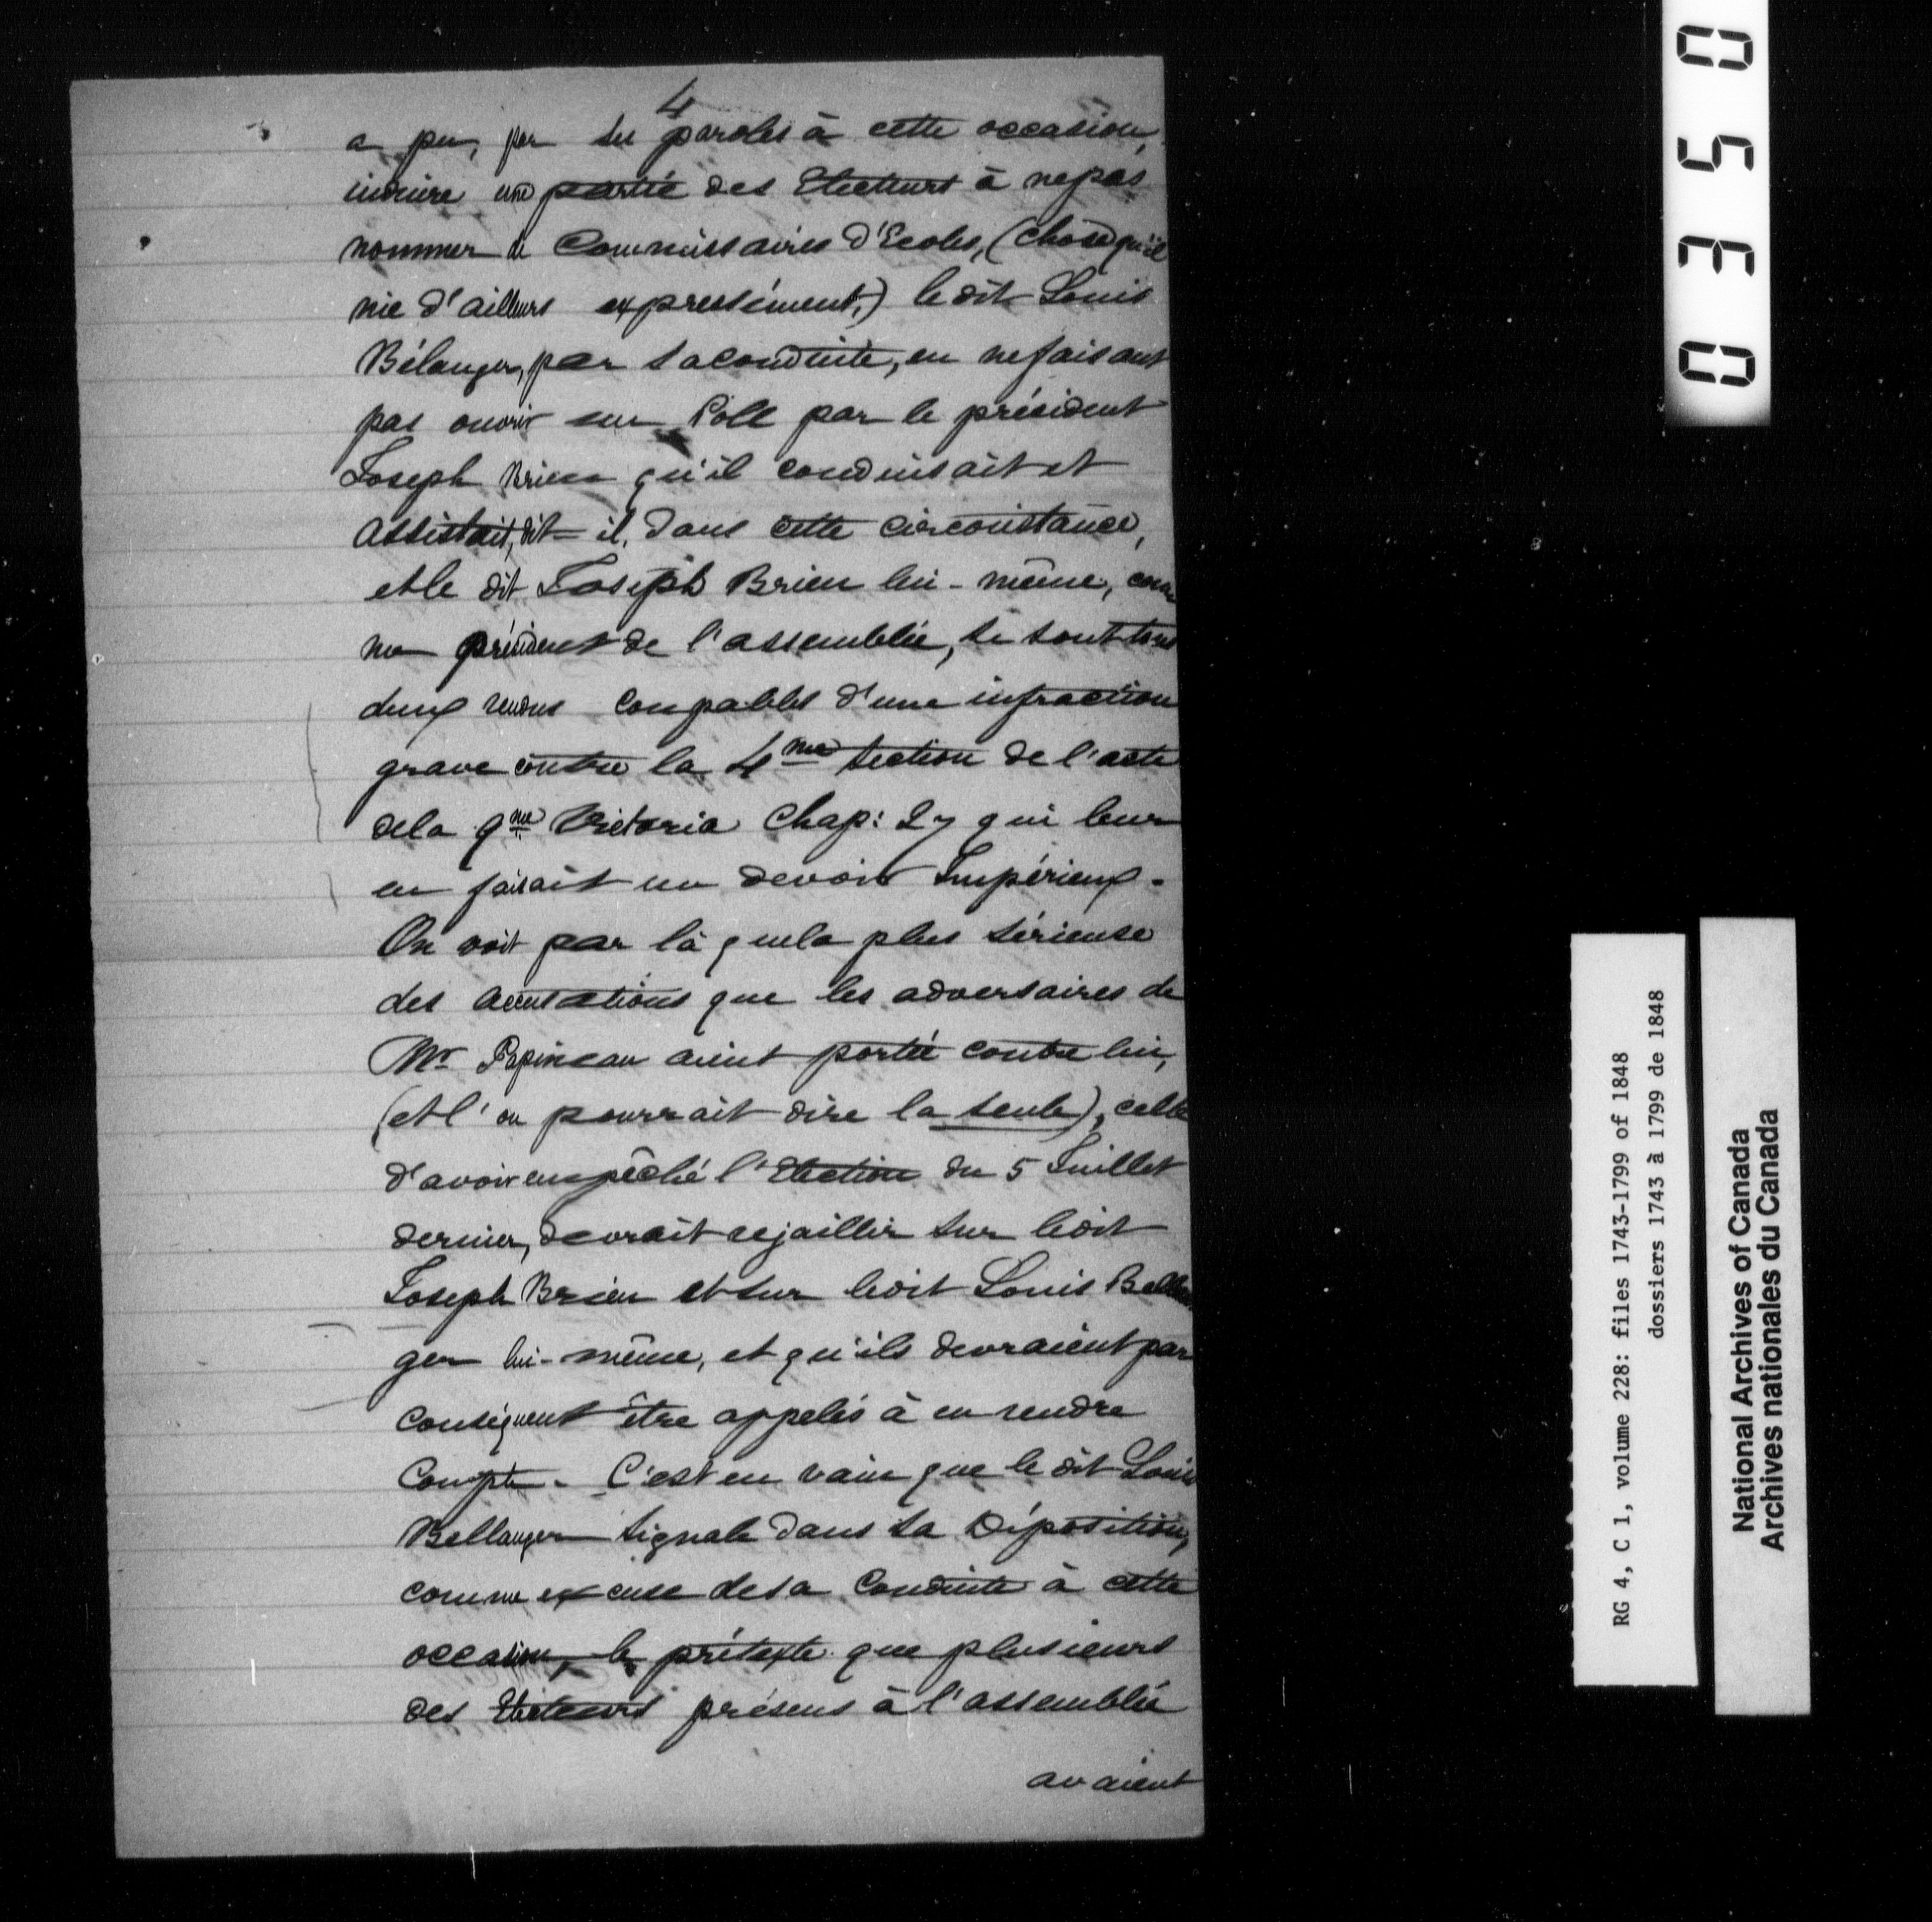 4
a pu, par ses paroles à cette occasion,
induire une partie des Electeurs à ne pas
nommer de Commissaires d'Ecoles, (chose qu'il
nie d'ailleurs expressément,) le dit Louis
Bélanger, par sa conduite, en ne faisant
pas ouvrir un Poll par le président
Joseph Brien qu'il conduisait et
assistait, dit-il, dans cette circonstance,
et le dit Joseph Brien lui-même, com
me président de l'assemblée, se sont tous
deux rendus coupables d'une infraction
grave contre la 4me section de l'acte
de la 9me Victoria Chap: 27 qui leur
en faisait un devoir Impérieux.
On voit par là que la plus sérieuse
des accusations que les adversaires de
Mr Papineau aient portée contre lui,
(et l'on pourrait dire la seule), celle
d'avoir empêché l'Election du 5 Juillet
dernier, devrait rejaillir sur le dit
Joseph Brien et sur le dit Louis Bellan
ger lui-même, et qu'ils devraient par
conséquent être appelés à en rendre
Compte. C'est en vain que le dit Louis
Bellanger signale dans sa Déposition,
comme excuse de sa Conduite à cette
occasion, le prétexte que plusieurs
des Electeurs présens à l'assemblée
avaient
0350
RG 4, C 1, volume 228: files 1743-1799 of 1848
dossiers 1743 à 1799 de 1848
National Archives of Canada
Archives nationales du Canada